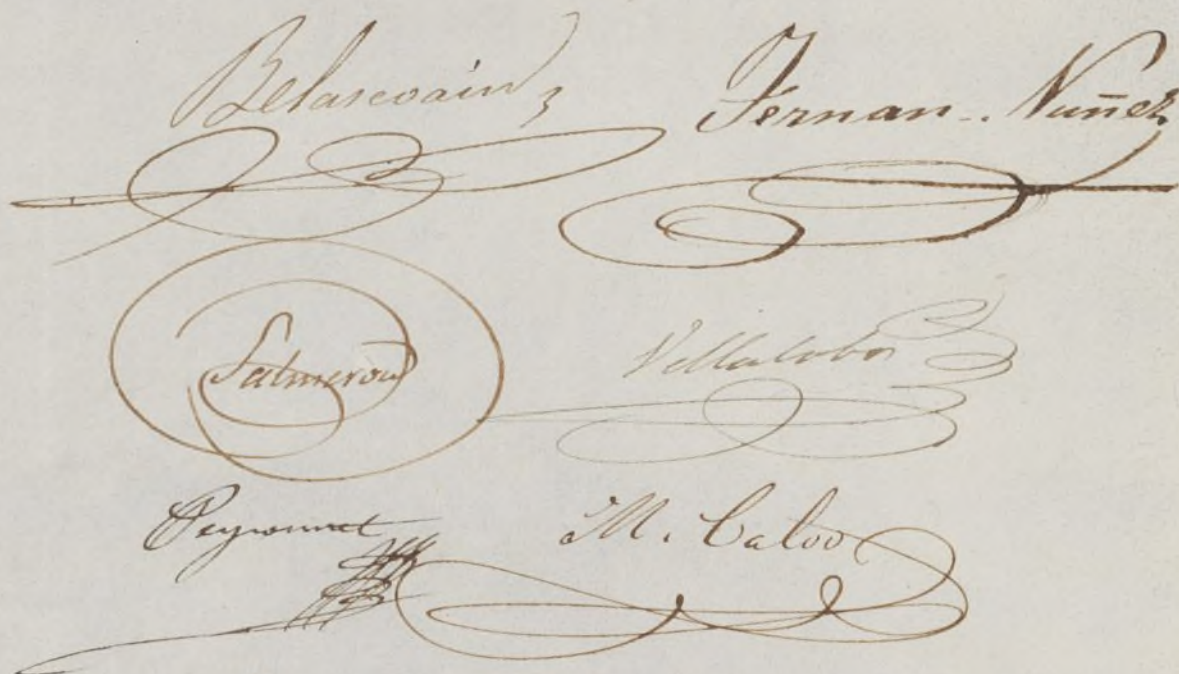 Belascoain Fernan-Nuñez
Salmeron Villalobos
Peyronnet M. Calvo